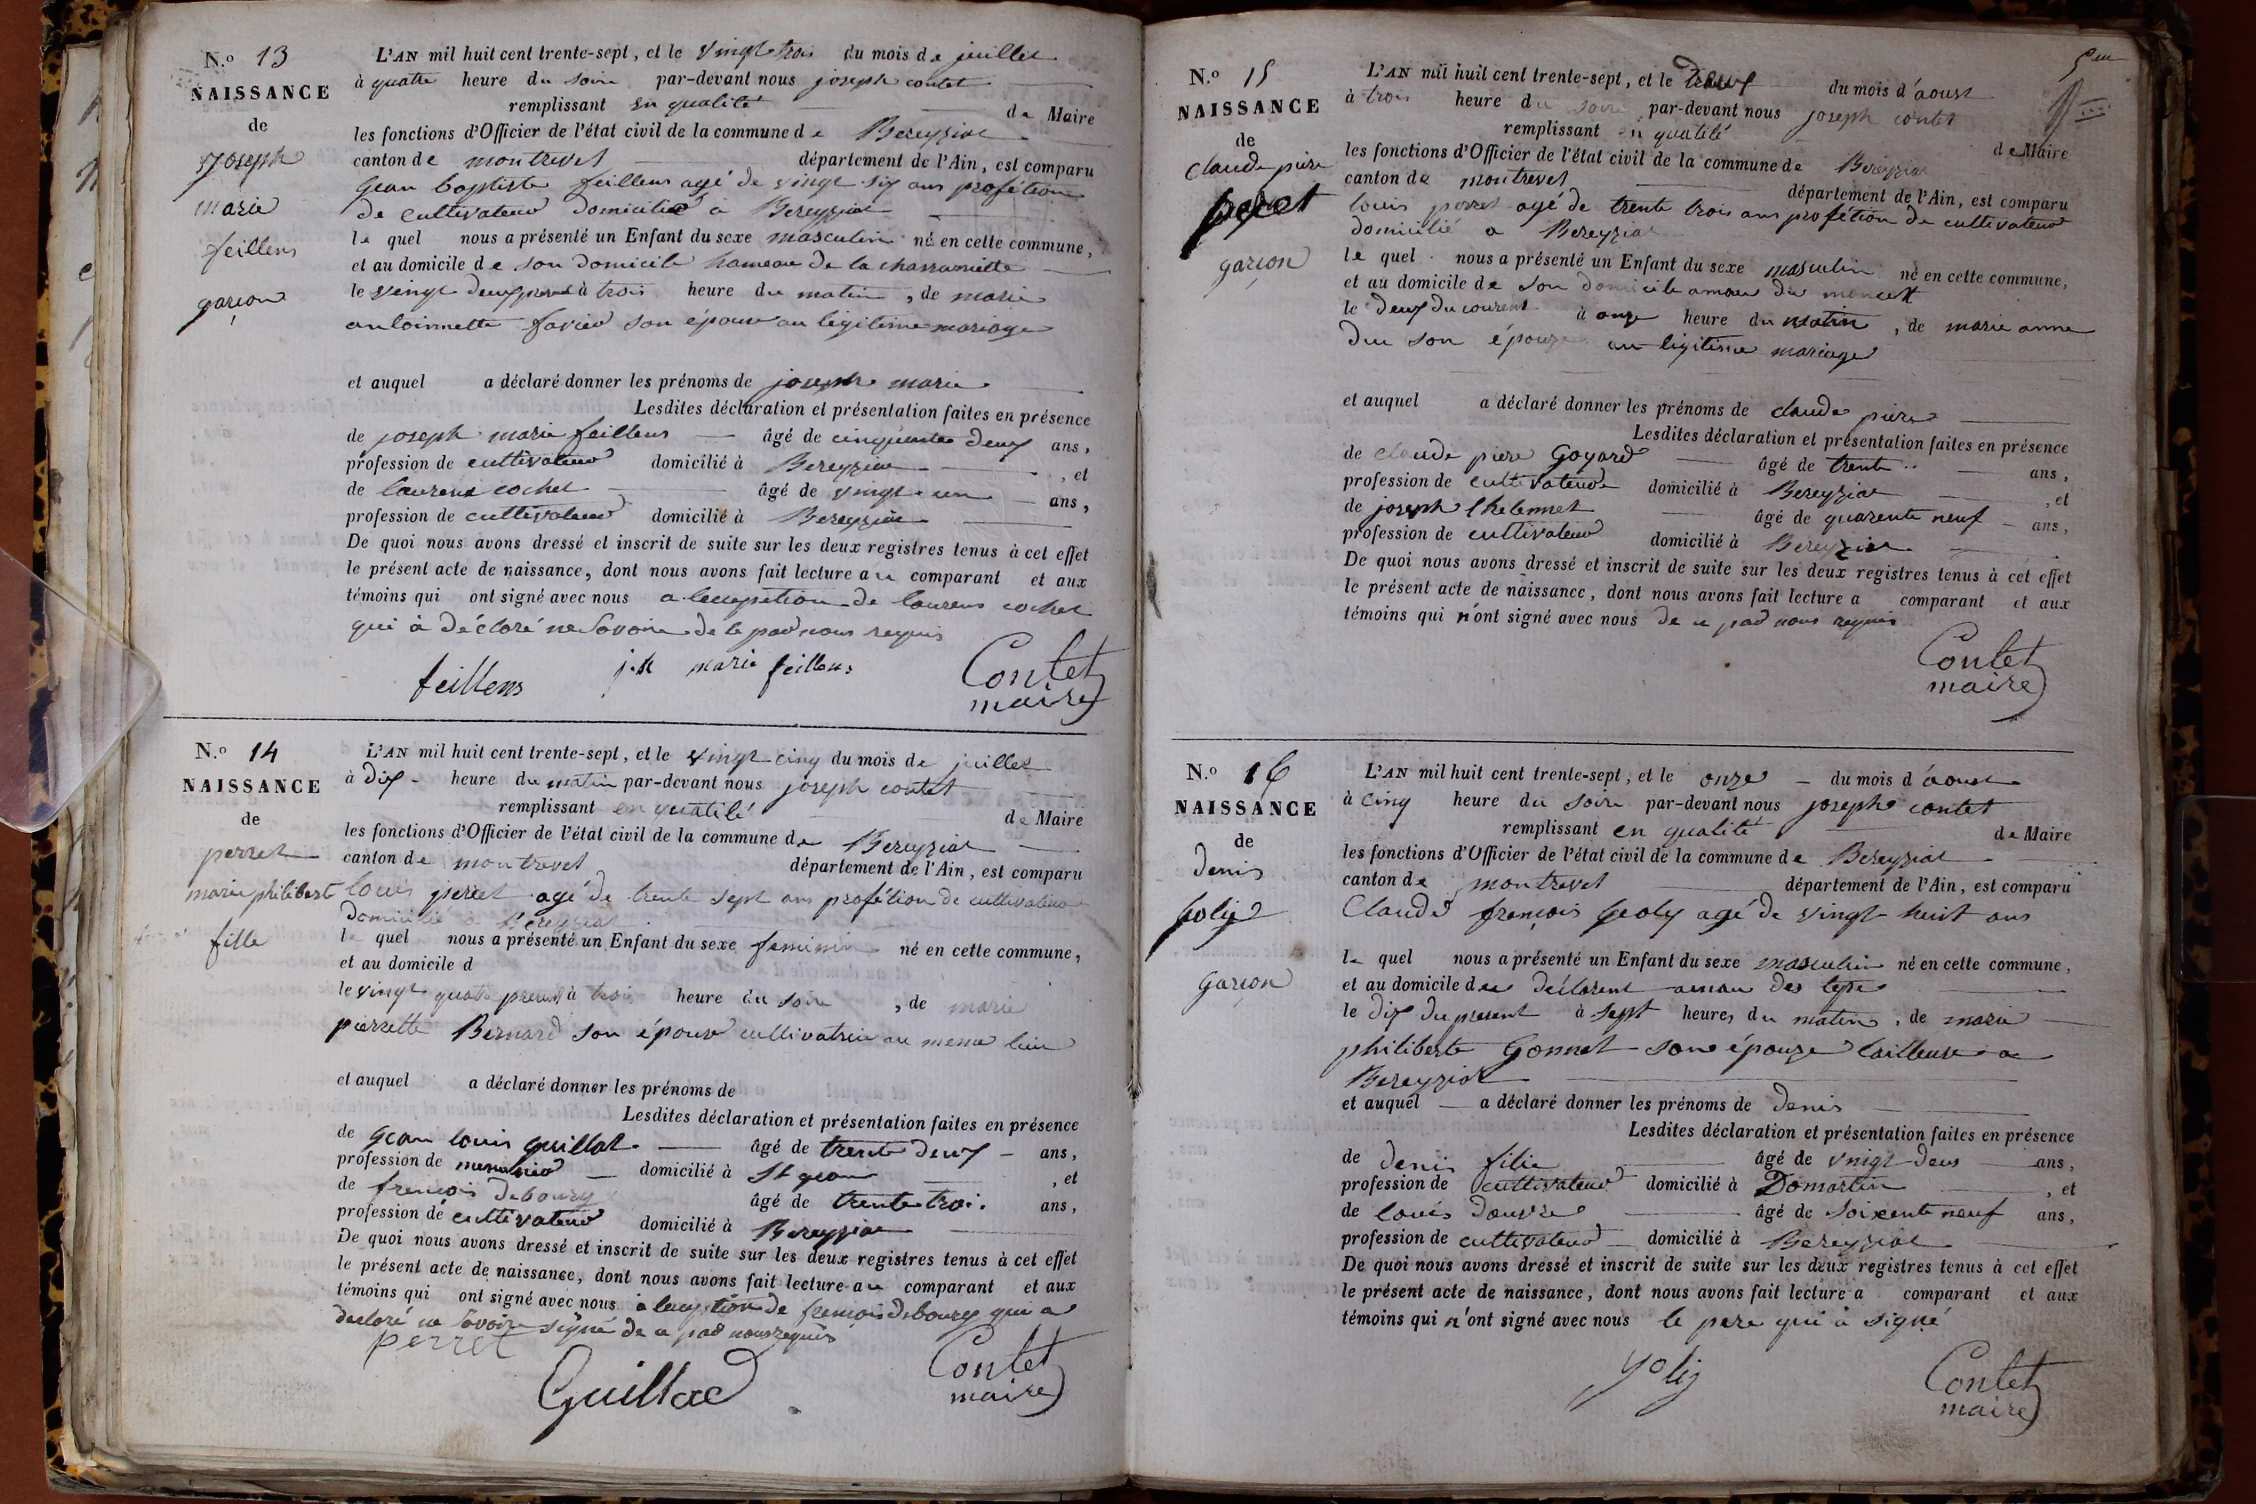 N.o 13
NAISSANCE
de
joseph
marie
feillens
garçon
L'AN mil huit cent trente-sept, et le vingt trois du mois de juillet
à quatre heure du soir par-devant nous joseph contet
remplissant en qualité de Maire
les fonctions d'Officier de l'état civil de la commune de Bereyziat
canton de montrevel département de l'Ain, est comparu
Gean baptiste feillens agé de vingt six ans profétion
de cultivateur domicilié à Bereyziat
le quel nous a présenté un Enfant du sexe masculin né en cette commune,
et au domicile de son domicile hameau de la charramette
le vingt deux à trois heure du matin, de marie
antoinnette favier son épouse au légitime mariage
et auquel a déclaré donner les prénoms de joseph marie
Lesdites déclaration et présentation faites en présence
de joseph marie feillens âgé de cinquante deux ans,
profession de cultivateur domicilié à Bereyziat, et
de laurent cochet âgé de vingt un ans,
profession de cultivateur domicilié à Bereyziat
De quoi nous avons dressé et inscrit de suite sur les deux registres tenus à cet effet
le présent acte de naissance, dont nous avons fait lecture au comparant et aux
témoins qui ont signé avec nous a lexception de laurens cochet
qui à décloré ne savoir de le par nous requis
feillens j.h marie feillens Contet
maire
N.o 14
NAISSANCE
de
perret
marie philibert
fille
L'AN mil huit cent trente-sept, et le vingt cinq du mois de juillet
à dix heure du matin par-devant nous joseph contet
remplissant en qualité de Maire
les fonctions d'Officier de l'état civil de la commune de Bereyziat
canton de montrevel département de l'Ain, est comparu
louis perret agé de trente sept ans profétion de cultivateur
domicilié à Bereyziat
le quel nous a présenté un Enfant du sexe feminin né en cette commune,
et au domicile d
le vingt quatre à trois heure du soir, de marie
pierrette Bernard son épouse cultivatrice au meme lieu
et auquel a déclaré donner les prénoms de
Lesdites déclaration et présentation faites en présence
de Gean louis guillot âgé de trente deux ans,
profession de menusier domicilié à St gean, et
de frencois debourg âgé de trente trois ans,
profession de cultivateur domicilié à Bereyziat
De quoi nous avons dressé et inscrit de suite sur les deux registres tenus à cet effet
le présent acte de naissance, dont nous avons fait lecture au comparant et aux
témoins qui ont signé avec nous a lexception de frencois debourg qui a
declaré ne savoir signé de ce par nous requis
perret
Guillot Contet
maire
5me
N.o 15
NAISSANCE
de
claude piere
perret
garçon
L'AN mil huit cent trente-sept, et le deux du mois d'aoust
à trois heure du soir par-devant nous joseph contet
remplissant en qualité de Maire
les fonctions d'Officier de l'état civil de la commune de Bereyziat
canton de montrevel département de l'Ain, est comparu
louis perret agé de trente trois ans profétion de cultivateur
domicilié a Bereyziat
le quel nous a présenté un Enfant du sexe masculin né en cette commune,
et au domicile de son domicile amau du moncet
le deux du courent à onze heure du matin, de marie anne
duc son épouze au légitime mariage
et auquel a déclaré donner les prénoms de claude piere
Lesdites déclaration et présentation faites en présence
de claude piere Goyard âgé de trente ans,
profession de cultivateur domicilié à Bereyziat, et
de joseph âgé de quarente neuf ans,
profession de cultivateur domicilié à Bereyziat
De quoi nous avons dressé et inscrit de suite sur les deux registres tenus à cet effet
le présent acte de naissance, dont nous avons fait lecture a comparant et aux
témoins qui n'ont signé avec nous de ce par nous requis
Contet
maire
N.o 16
NAISSANCE
de
denis
joly
garçon
L'AN mil huit cent trente-sept, et le onze du mois d'aoust
à cinq heure du soir par-devant nous joseph contet
remplissant en qualité de Maire
les fonctions d'Officier de l'état civil de la commune de Bereyziat
canton de montrevel département de l'Ain, est comparu
Claude françois joly agé de vingt huit ans
le quel nous a présenté un Enfant du sexe masculin né en cette commune,
et au domicile du déclarent amau des
le dix du present à sept heures du matin, de marie
philiberte Gonnet son épouze tailleuse a
Bereyziat
et auquel a déclaré donner les prénoms de denis
Lesdites déclaration et présentation faites en présence
de denis âgé de vingt deus ans,
profession de cultivateur domicilié à Domartin, et
de louis douvre âgé de soixente neuf ans,
profession de cultivateur domicilié à Bereyziat
De quoi nous avons dressé et inscrit de suite sur les deux registres tenus à cet effet
le présent acte de naissance, dont nous avons fait lecture a comparant et aux
témoins qui n'ont signé avec nous le pere qui à signé
joly Contet
maire